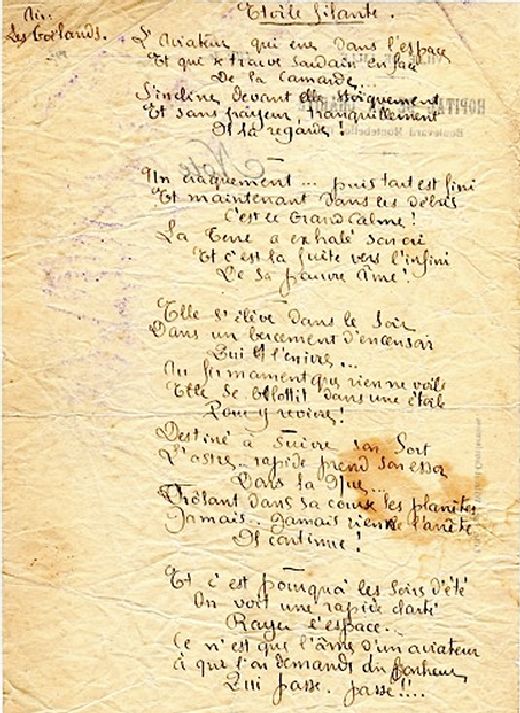 Etoile Filante.
Air:
Les Goëlands.
L'Aviateur qui erre dans l'espace
Et que se trouve soudain en face
De la Camarde...
S'incline devant elle stoïquement
Et sans frayeur, tranquillement
Il la regarde!
HOPITAL
Boulevard Montebello
Note
Un craquement... puis tout est fini
Et maintenant dans les débris
C'est le Grand Calme!
La Terre a exhalé son cri
Et c'est la fuite vers l'infini
De sa pauvre Âme!
Elle s'élève dans le Soir
Dans un bercement d'encensoir
Qui l'enivre...
Au firmament que rien ne voile
Elle se blottit dans une étoile
Pour y revivre!
Destiné à suivre son Sort
L'astre.. rapide prend son essor
Dans la Nue...
Frôlant dans sa course les planètes
Jamais.. Jamais rien ne l'arrête
Il continue!
Et c'est pourquoi les soirs d'été
On voit une rapide clarté
Rayer l'espace.
Ce n'est que l'âme d'un aviateur
à que l'on demande du Bonheur
Qui passe. passe!!...